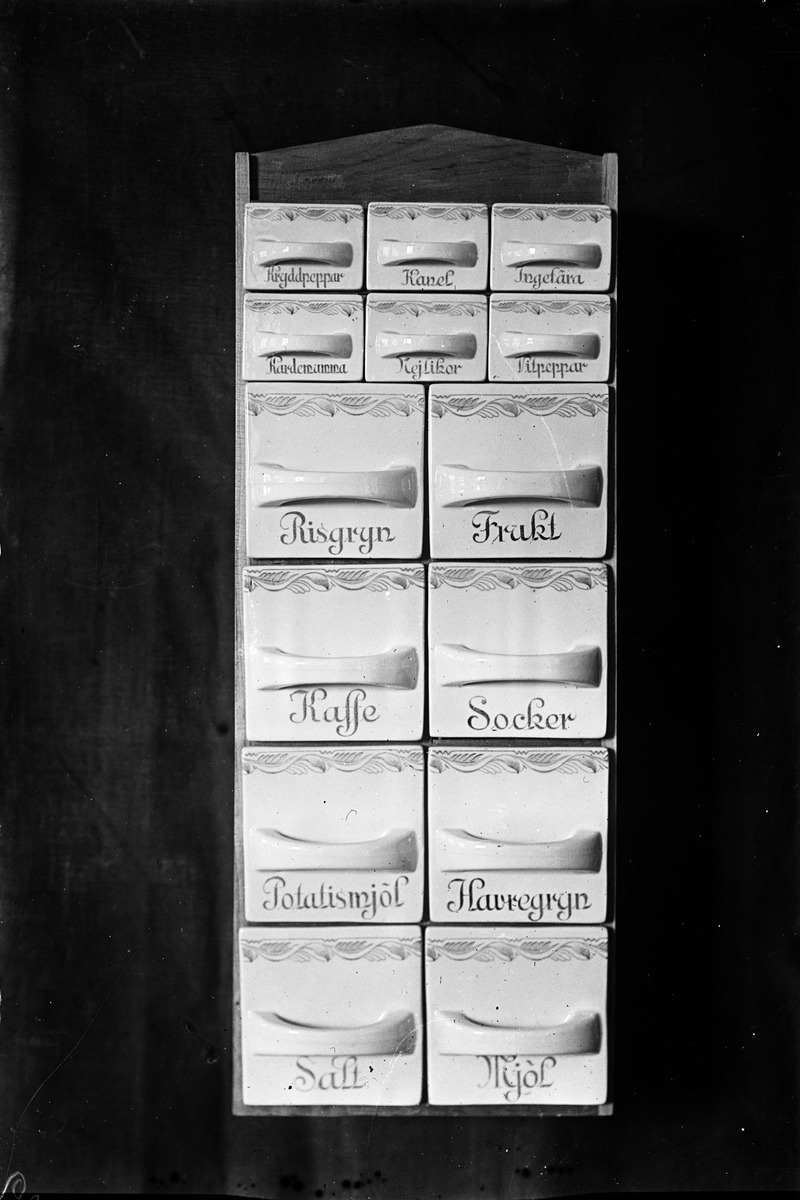 Kryddpeppar Kanel Ingefära
Kardemumma Nejlikor Vitpeppar
Risgryn Frukt
Kaffe Socker
Potatismjöl Havregryn
Salt Mjöl